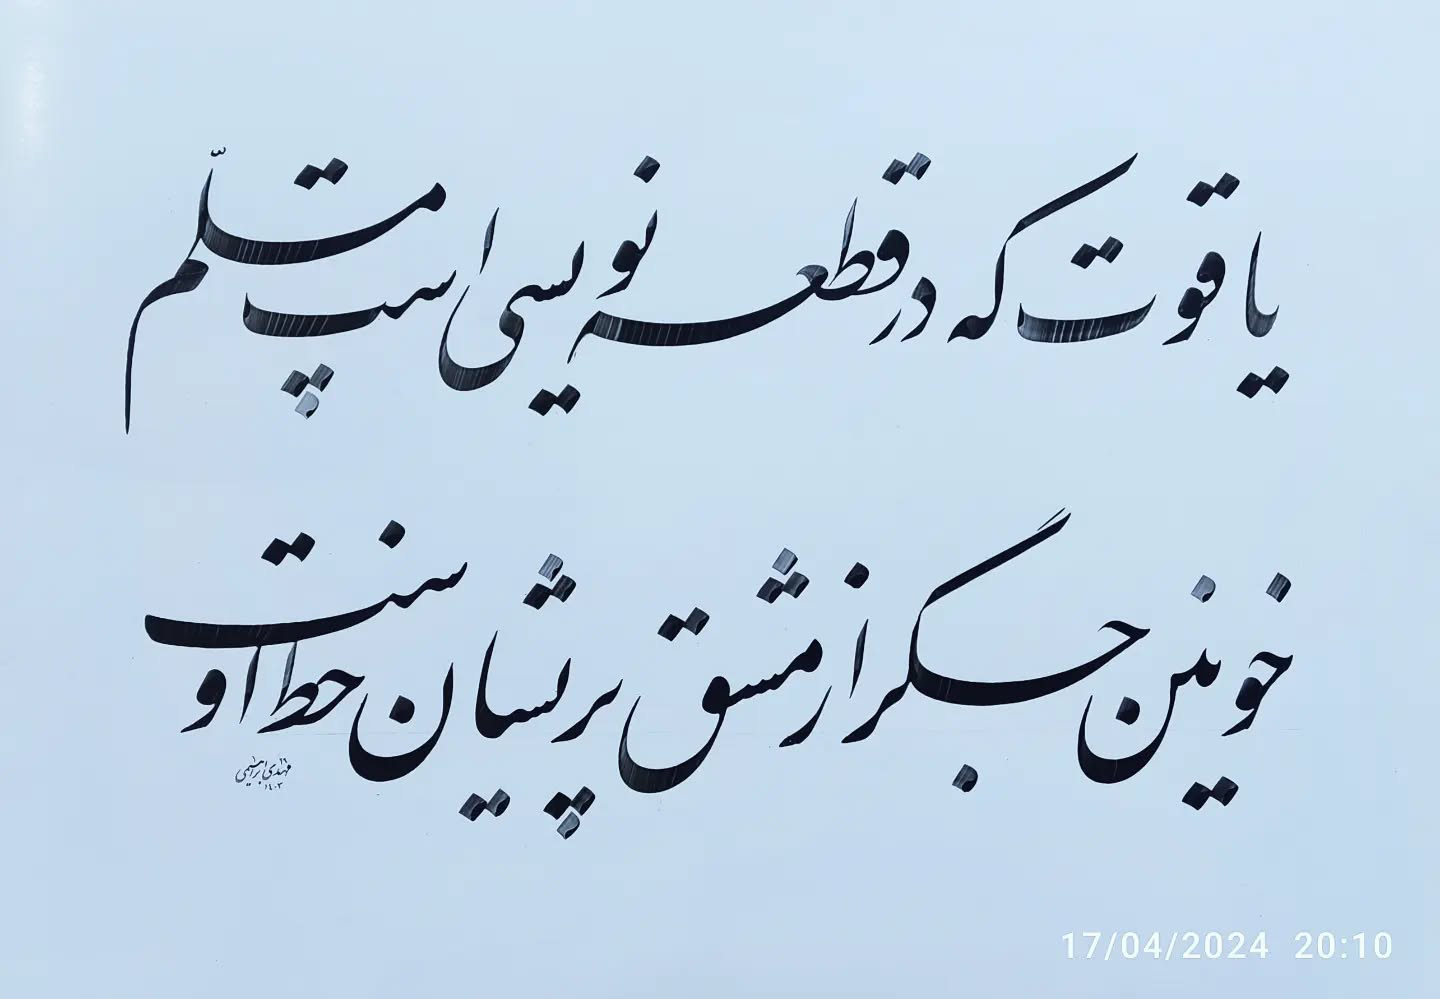 یاقوت که در قطعه نویسی است مسلّم
خونین جگر از مشق پریشان خط اوست
مهدی ابراهیمی
۱۴۰۳
17/04/2024 20:10